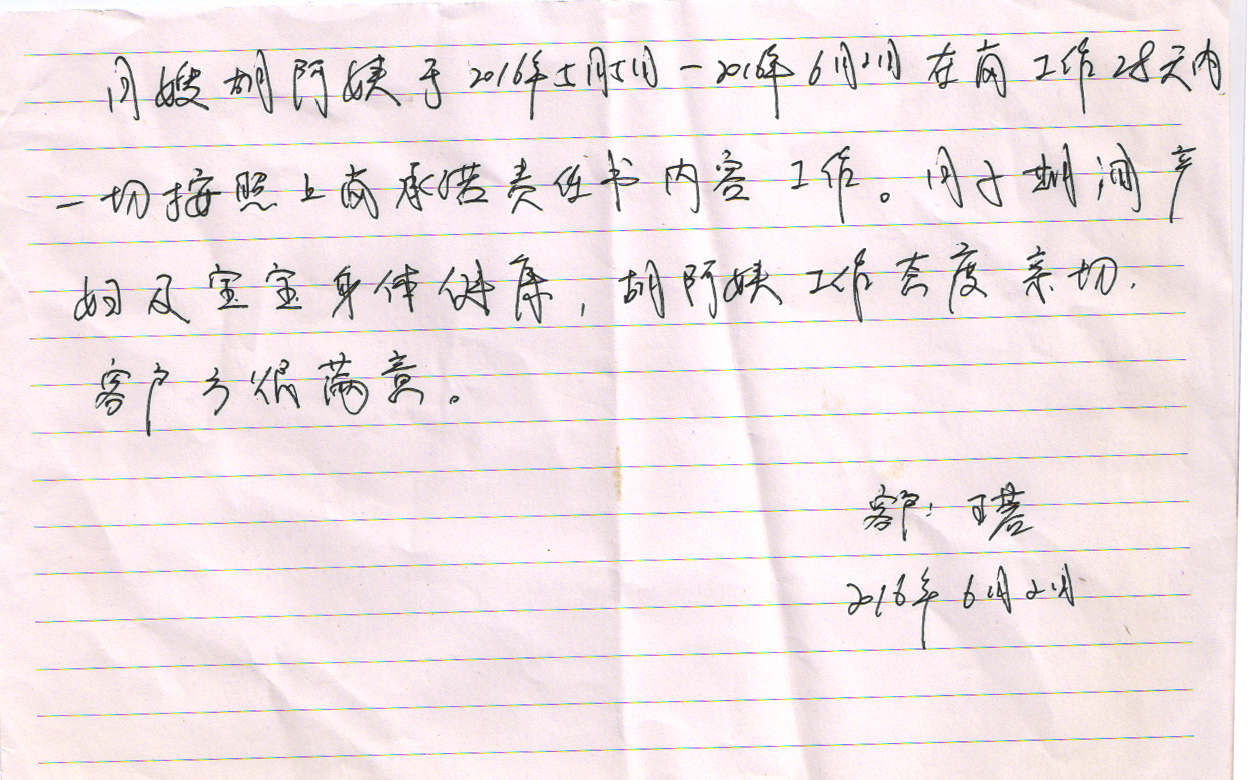 月嫂胡阿姨于2016年5月5日-2016年6月2日在岗工作28天内
一切按照上岗承诺责任书内容工作。月子期间产
妇及宝宝身体健康,胡阿姨工作态度亲切.
客户方很满意。
客户:王
2016年6月2日